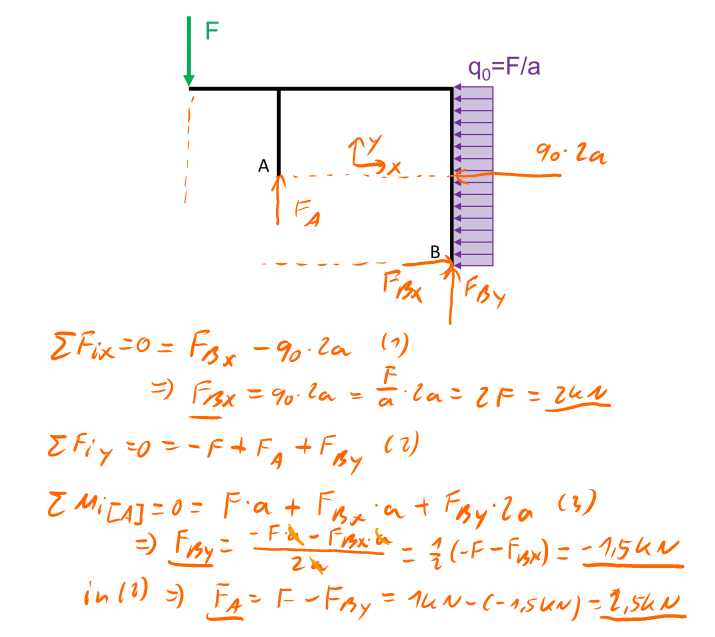 F
q₀=F/a
y
x
q₀·2a
A
F_A
B
F_Bx F_By
ΣF_ix=0 = F_Bx − q₀·2a (1)
⇒ F_Bx = q₀·2a = F/a · 2a = 2F = 2kN
ΣF_iy=0 = −F + F_A + F_By (2)
ΣM_i[A]=0 = F·a + F_Bx·a + F_By·2a (3)
⇒ F_By = (−F·a − F_Bx·a)/(2a) = 1/2 (−F−F_Bx) = −1,5kN
in (2) ⇒ F_A = F − F_By = 1kN−(−1,5kN) = 2,5kN